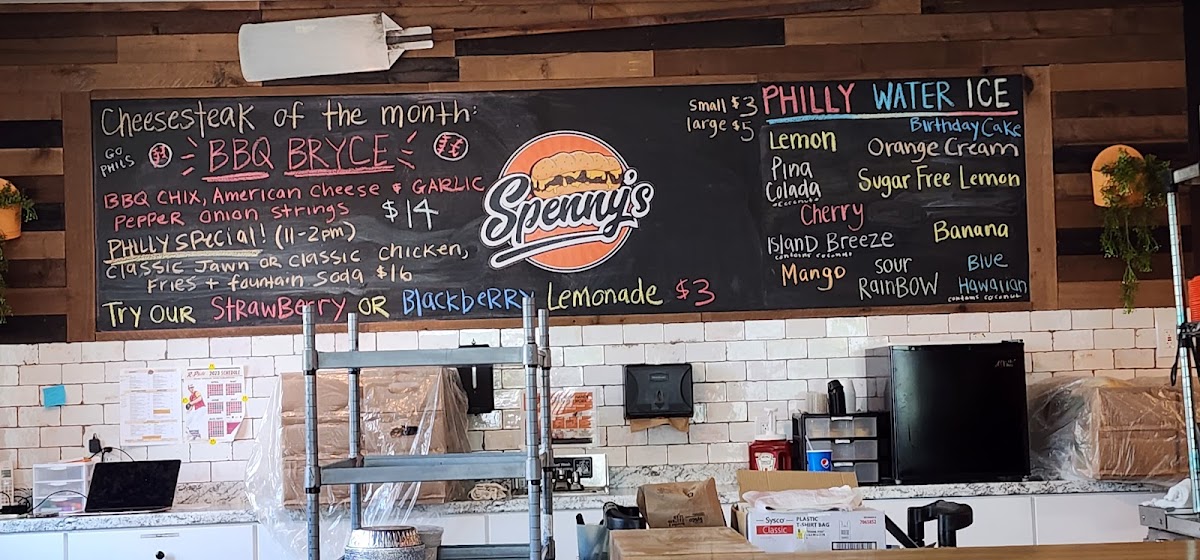 Cheesesteak of the month:
GO
PHILS
BBQ BRYCE
BBQ CHIX, American Cheese & GARLIC
PEPPER ONION STRINGS $14
PHILLY SPECIAL! (11-2pm)
CLASSIC JAWN OR CLASSIC CHICKEN,
FRIES + fountain Soda $16
TRY OUR STRAWBERRY OR BlackbeRRY Lemonade $3
Spenny's
Small $3
large $5
PHILLY WATER ICE
Birthday Cake
Lemon
Orange Cream
Pina
Colada
Sugar Free Lemon
Cherry
ISLAND BREEZE
contains coconut
Banana
Mango
SOUR
RAINBOW
Blue
Hawaiian
contains coconut
2023 SCHEDULE
Sysco
Classic
PLASTIC
T-SHIRT BAG